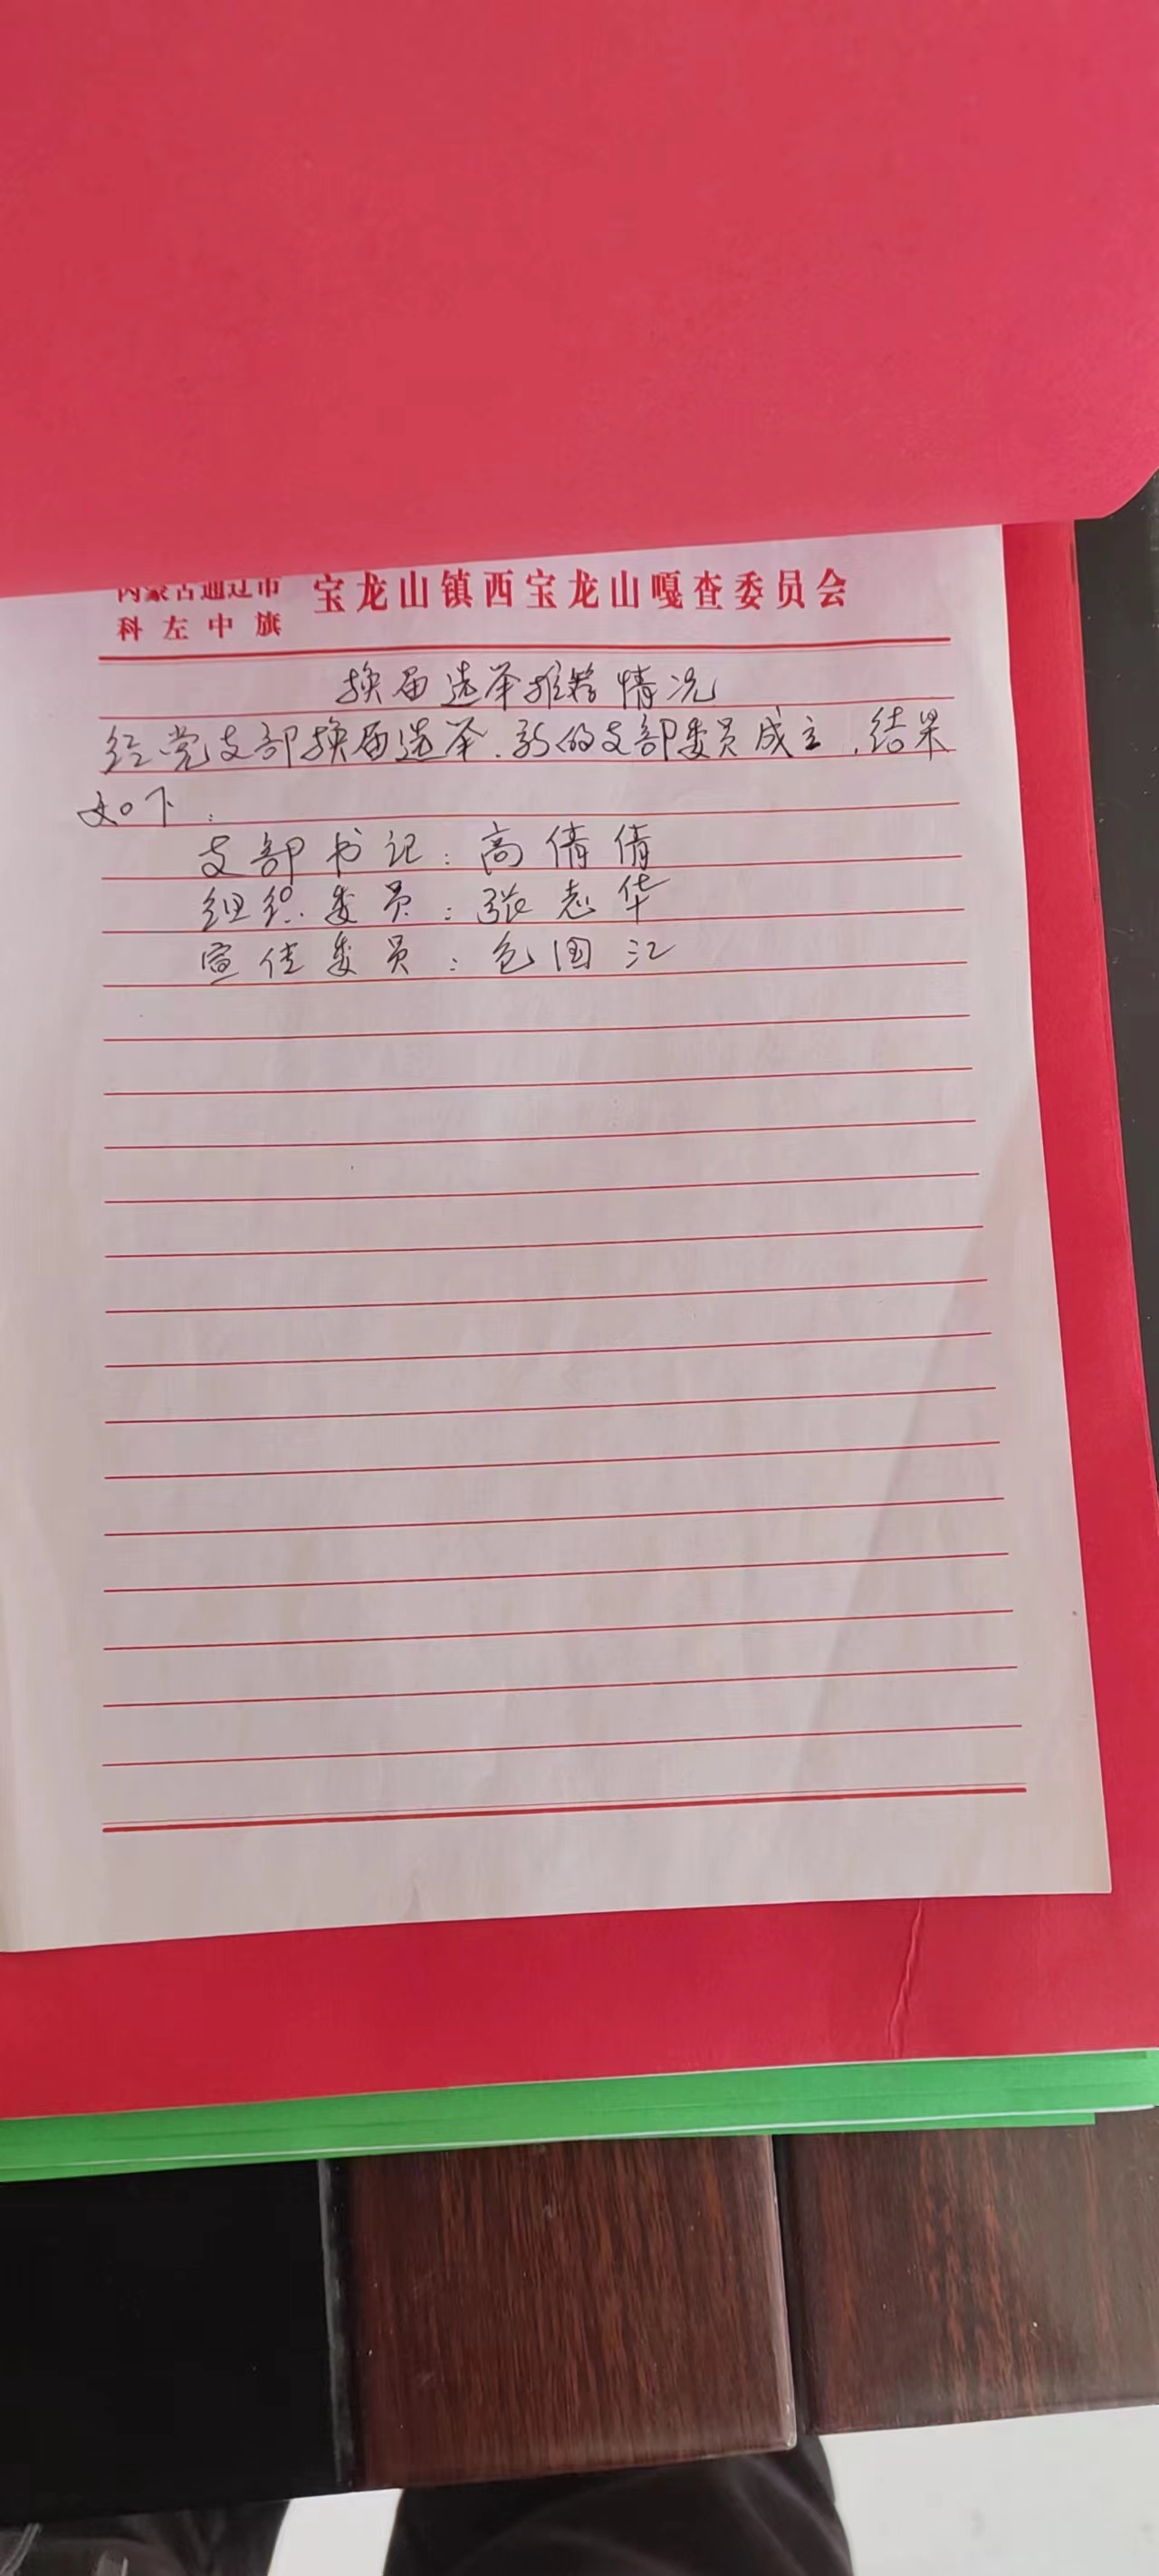 内蒙古通辽市
科左中旗
宝龙山镇西宝龙山嘎查委员会
换届选举推荐情况
经党支部换届选举.新的支部委员成立,结果
如下:
支部书记:高倩倩
组织委员:张志华
宣传委员:包国江